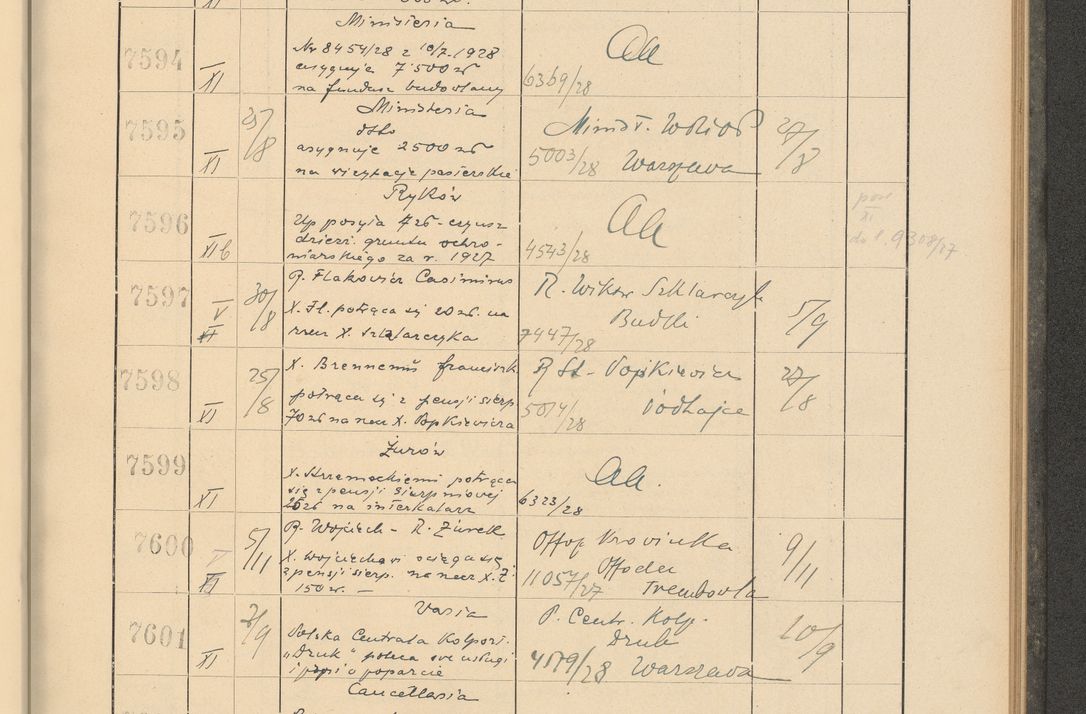 XI
Ministeria
7594
XI
Nr 8454/28 z 10/7. 1928
asygnuje 7'500 zł
na fundusz budowlany
Aa
6369/28
7595
XI
25/8
Ministeria
asygnuje 2500 zł
na wizytacje pasterskie
Minist. WRiOP
5003/28 Warszawa
27/8
7596
XI b
Ryków
Up posyła 7 zł - czynsz
dzierż. gruntu ochro-
niarskiego za r. 1927
Aa
4543/28
XI
do l. 9308/27
7597
V
XI
30/8
R. Flakowicz Casimirus
X. Fl. potrąca się 20 zł. na
rzecz X. Szklarczyka
R. Wiktor Szklarczyk
Budki
7447/28
5/9
7598
XI
25/8
X. Brennemu Francisk
potrąca się z pensji sierp.
70 zł na rzecz X. Popkiewicza
R St. Popkiewicz
5014/28 Podhajce
27/8
7599
XI
Żurów
X. potrąca
się z pensji sierpniowej
25 zł na interkalarz
Aa.
6323/28
7600
V
XI
5/11
R. Wojciech - R. Żurek
X. Wojciechowi ściąga się
z pensji sierp. na rzecz X. Ż.
150 zł. —
Krowinka
11057/27 Trembowla
9/11
7601
XI
2/9
Varia
Polska Centrala Kolport.
„Druk" poleca swe usługi
i prosi o poparcie
P. Centr. Kolp.
Druk
4179/28 Warszawa
10/9
Cancellaria